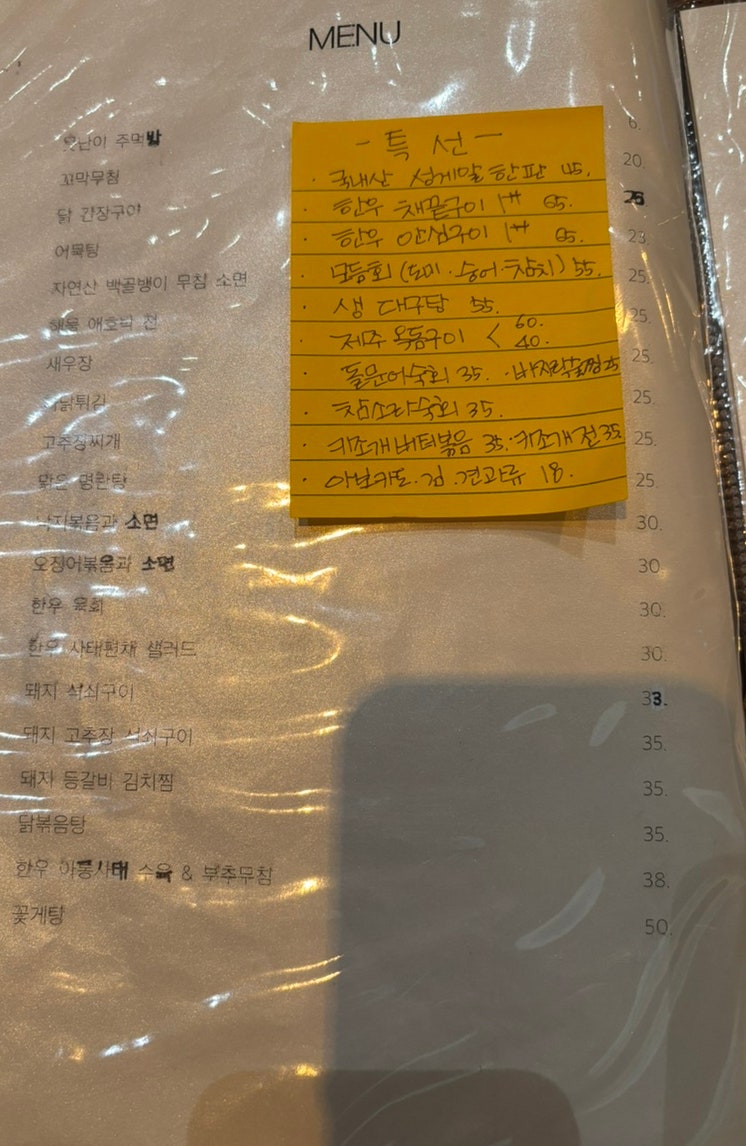 MENU
못난이 주먹밥 6.
꼬막무침 20.
닭 간장구이 25
어묵탕 23
자연산 백골뱅이 무침 소면 25.
해물 애호박 전 25.
새우장 25.
닭튀김 25.
고추장찌개 25.
맑은 명란탕 25.
낙지볶음과 소면 30.
오징어볶음과 소면 30
한우 육회 30.
한우 사태편채 샐러드 30.
돼지 석쇠구이 33.
돼지 고추장 석쇠구이 35.
돼지 등갈비 김치찜 35.
닭볶음탕 35.
한우 아롱사태 수육 & 부추무침 38.
꽃게탕 50.
- 특선 -
· 국내산 성게알 한판 45.
· 한우 채끝구이 1++ 65.
· 한우 안심구이 1++ 65.
· 모듬회 (도미·숭어·참치) 55.
· 생 대구탕 55.
· 제주 옥돔구이 < 60. 40.
· 돌문어숙회 35. · 바지락술찜 25
· 참소라숙회 35.
· 키조개버터볶음 35. · 키조개전 35
· 아보카도. 김. 견과류 18.